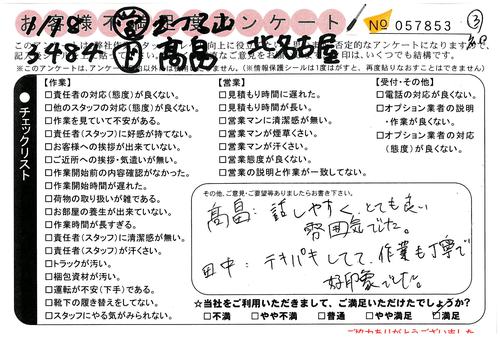 お客様不満足度アンケート
No 057853
3
1/18
3484
高畠
北名古屋
※このアンケートは、
(※情報保護シールは1度はがすと、再度貼りなおすことはできません)
チェックリスト
【作業】
□責任者の対応(態度)が良くない。
□他のスタッフの対応(態度)が良くない。
□作業を見ていて不安がある。
□責任者(スタッフ)に好感が持てない。
□お客様への挨拶が出来ていない。
□ご近所への挨拶・気遣いが無い。
□作業開始前の内容確認がなかった。
□作業開始時間が遅れた。
□荷物の取り扱いが雑である。
□お部屋の養生が出来ていない。
□作業時間が長すぎる。
□責任者(スタッフ)に清潔感が無い。
□責任者(スタッフ)が汗くさい。
□トラックが汚い。
□梱包資材が汚い。
□運転が不安(下手)である。
□靴下の履き替えをしてない。
□スタッフにやる気がみられない。
【営業】
□見積もり時間に遅れた。
□見積もり時間が長い。
□営業マンに清潔感が無い。
□営業マンが煙草くさい。
□営業マンが汗くさい。
□営業態度が良くない。
□営業の説明と作業が一致してない。
【受付・その他】
□電話の対応が良くない。
□オプション業者の説明
・作業が良くない。
□オプション業者の対応
(態度)が良くない。
その他、ご意見・ご要望等ありましたらお書き下さい。
高畠:話しやすく、とても良い
雰囲気でした。
田中:テキパキしてて、作業も丁寧で
好印象でした。
☆当社をご利用いただきまして、ご満足いただけたでしょうか?
□不満 □やや不満 □普通 □やや満足 ☑満足
ご協力ありがとうございました